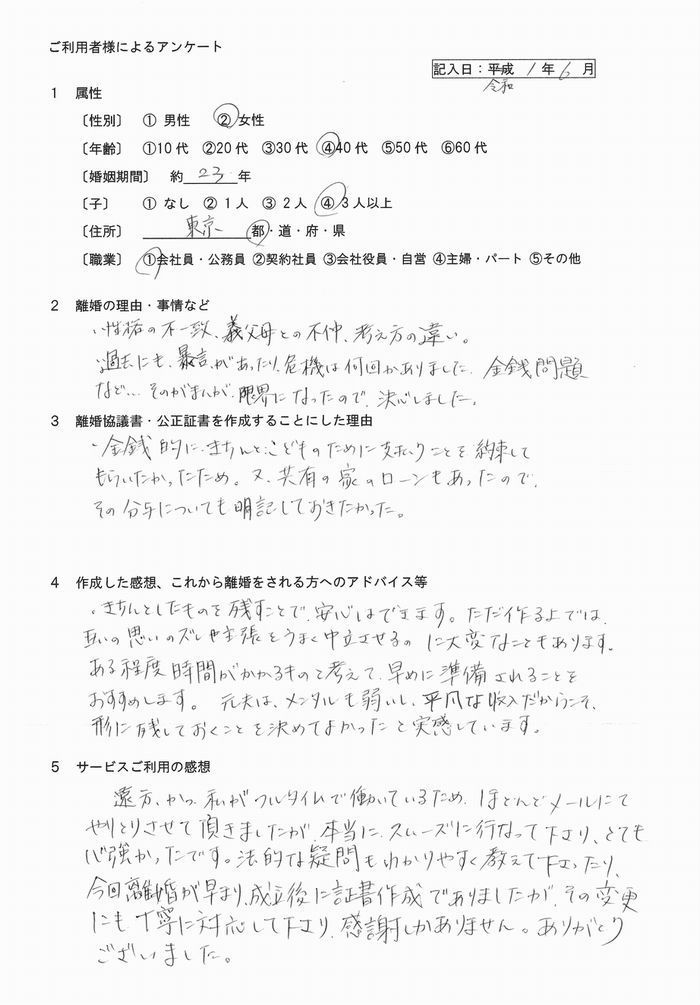 ご利用者様によるアンケート
記入日：平成 1年 6月
令和
1 属性
〔性別〕 ① 男性 ② 女性
〔年齢〕 ①10代 ②20代 ③30代 ④40代 ⑤50代 ⑥60代
〔婚姻期間〕 約 23 年
〔子〕 ① なし ② 1人 ③ 2人 ④ 3人以上
〔住所〕 東京 都・道・府・県
〔職業〕 ①会社員・公務員 ②契約社員 ③会社役員・自営 ④主婦・パート ⑤その他
2 離婚の理由・事情など
・性格の不一致、義父母との不仲、考え方の違い。
・過去にも、暴言があったり、危機は何回かありました。金銭問題
など… そのがまんが、限界になったので、決心しました。
3 離婚協議書・公正証書を作成することにした理由
・金銭的に、きちんと、こどものために支払うことを約束して
もらいたかったため。又、共有の家のローンもあったので、
その分与についても明記しておきたかった。
4 作成した感想、これから離婚をされる方へのアドバイス等
・きちんとしたものを残すことで、安心はできます。ただ作る上では、
互いの思いのズレや主張をうまく中立させるのに大変なこともあります。
ある程度時間がかかるものと考えて、早めに準備されることを
おすすめします。 元夫は、メンタルも弱いし、平凡な収入だからこそ、
形に残しておくことを決めてよかったと実感しています。
5 サービスご利用の感想
遠方、かつ、私がフルタイムで働いているため、ほとんどメールにて
やりとりさせて頂きましたが、本当に、スムーズに行なって下さり、とても
心強かったです。法的な疑問もわかりやすく教えて下さったり、
今回離婚が早まり、成立後に証書作成でありましたが、その変更
にも丁寧に対応して下さり、感謝しかありません。ありがとう
ございました。